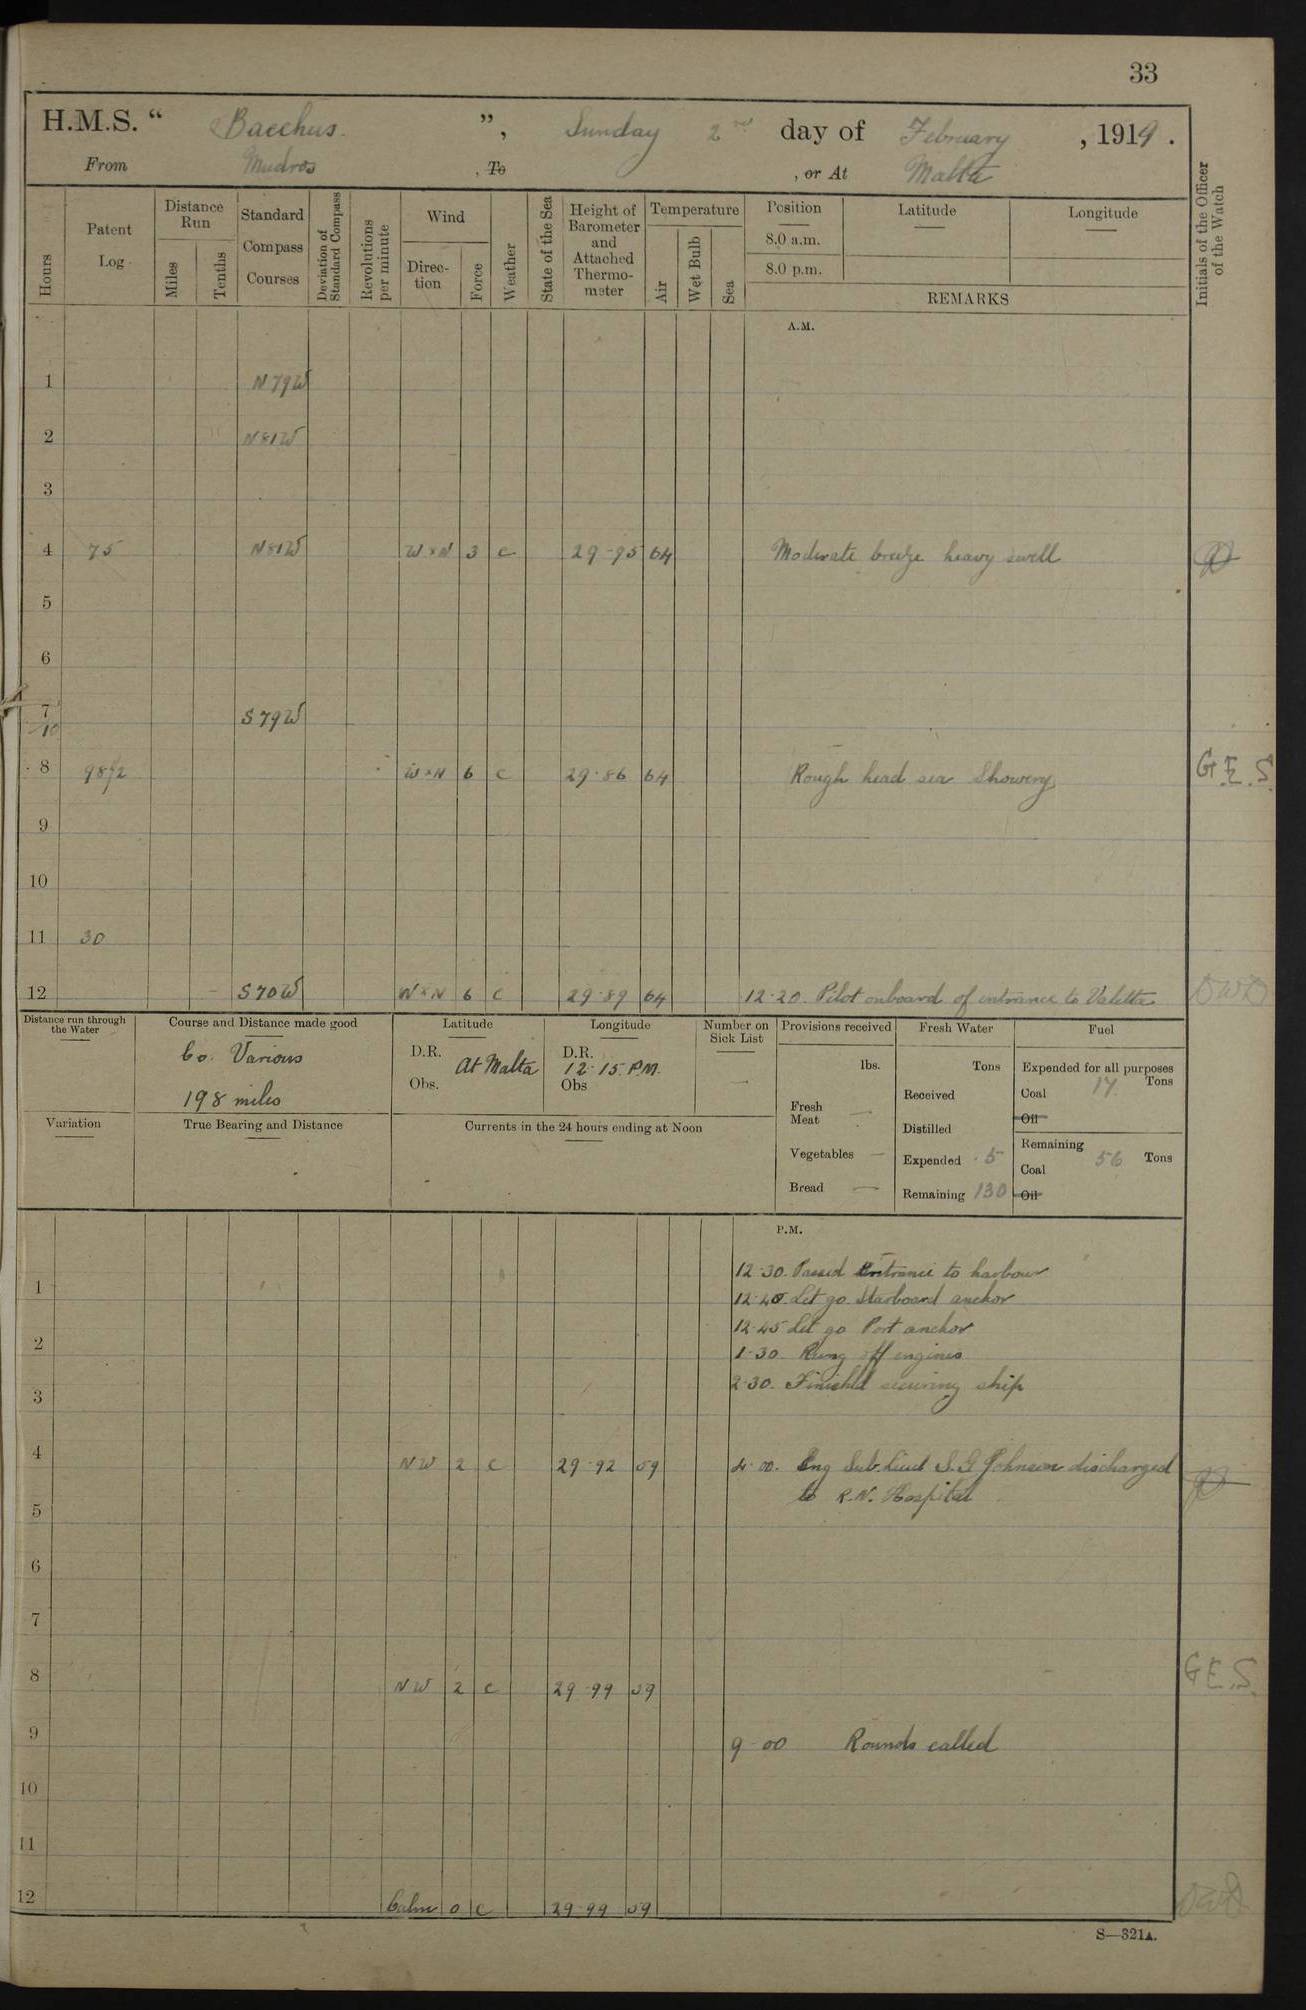 33
H.M.S. “ Bacchus. ”, Sunday 2nd day of February , 1919 .
From Mudros , To , or At Malta
Hours
Patent Log
Distance Run
Miles
Tenths
Standard Compass Courses
Deviation of Standard Compass
Revolutions per minute
Wind
Direc- tion
Force
Weather
State of the Sea
Height of Barometer and Attached Thermo- meter
Temperature
Air
Wet Bulb
Sea
Position
8.0 a.m.
8.0 p.m.
Latitude
Longitude
REMARKS
Initials of the Officer of the Watch
A.M.
1 N79W
2 N81W
3
4 75 N81W W x N 3 c 29-95 64 Moderate breeze heavy swell
5
6
7/10 S79W
8 98½ W x N 6 c 29-86 64 Rough head sea Showery G.E.S.
9
10
11 30
12 S70W W x N 6 c 29-89 64 12-20. Pilot onboard of entrance to Valetta
Distance run through the Water
Course and Distance made good
Co. Various
198 miles
Latitude
D.R. At Malta
Obs.
Longitude
D.R. 12-15 P.M.
Obs
Number on Sick List —
Provisions received
lbs.
Fresh Meat —
Vegetables —
Bread —
Fresh Water
Tons
Received
Distilled
Expended 5
Remaining 130
Fuel
Expended for all purposes
Coal 17. Tons
Oil
Remaining
Coal 56 Tons
Oil
Variation
True Bearing and Distance
Currents in the 24 hours ending at Noon
P.M.
12-30. Passed Entrance to harbour
1
12-40. Let go Starboard anchor
12-45 Let go Port anchor
2
1-30. Rung off engines
2-30. Finishd securing ship
3
4 NW 2 c 29-92 59 4-00. Eng Sub. Lieut S.G Johnson discharged
to R.N. Hospital
5
6
7
8 NW 2 c 29-99 59 G.E.S.
9 9-00 Rounds called
10
11
12 Calm 0 c 29-99 59
S—321A.